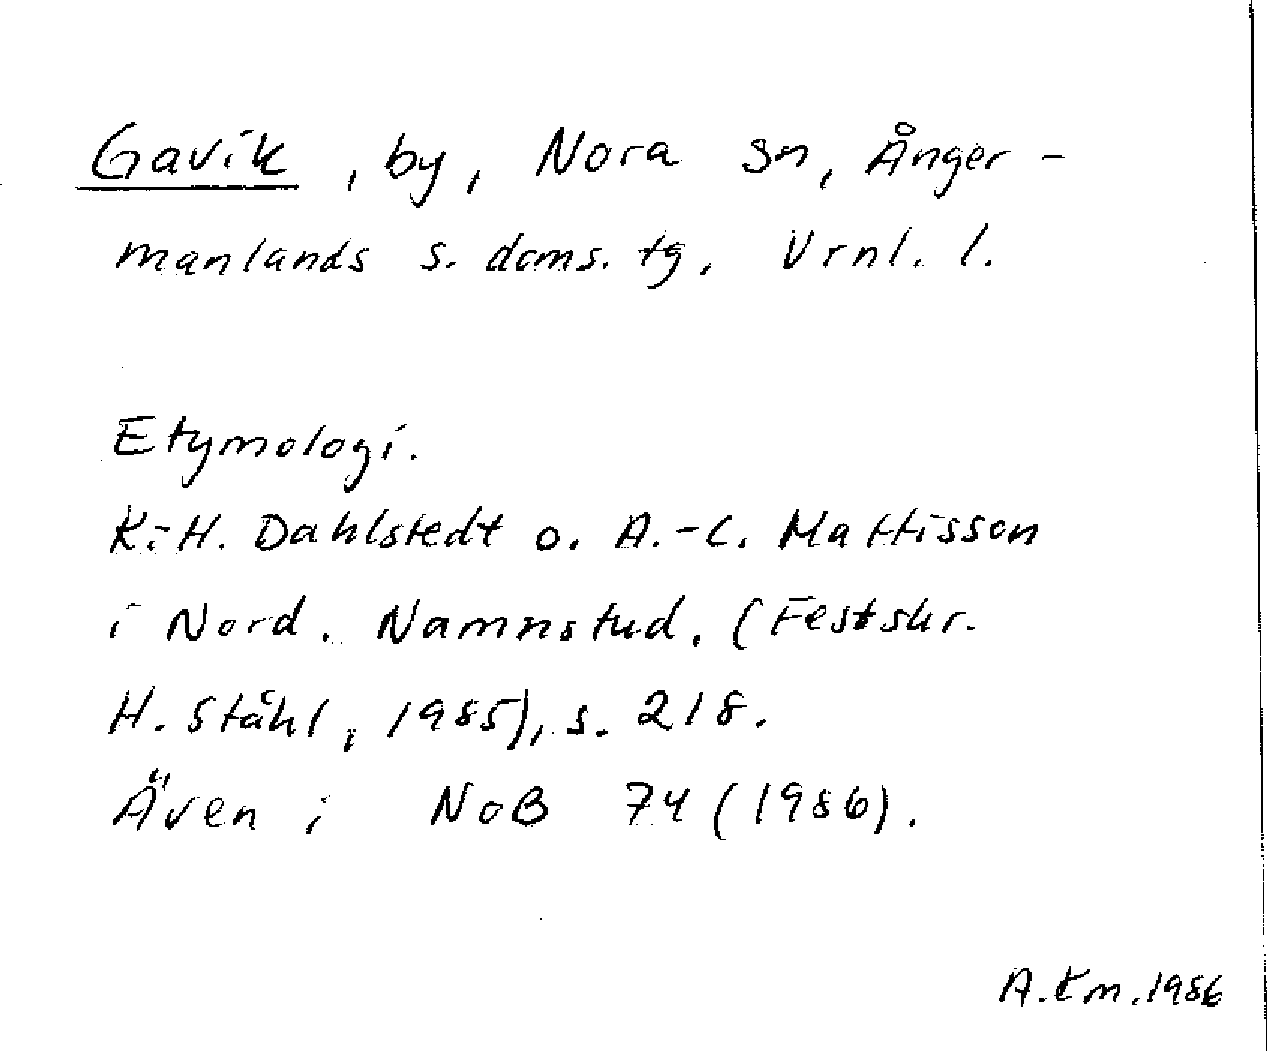 Gavik, by, Nora sn, Ånger-
manlands s. doms. tg, Vrnl. l.
Etymologi.
K.-H. Dahlstedt o. A.-C. Mattisson
i Nord. Namnstud. (Festskr.
H. Ståhl, 1985), s. 218.
Även i NoB 74 (1986).
1986